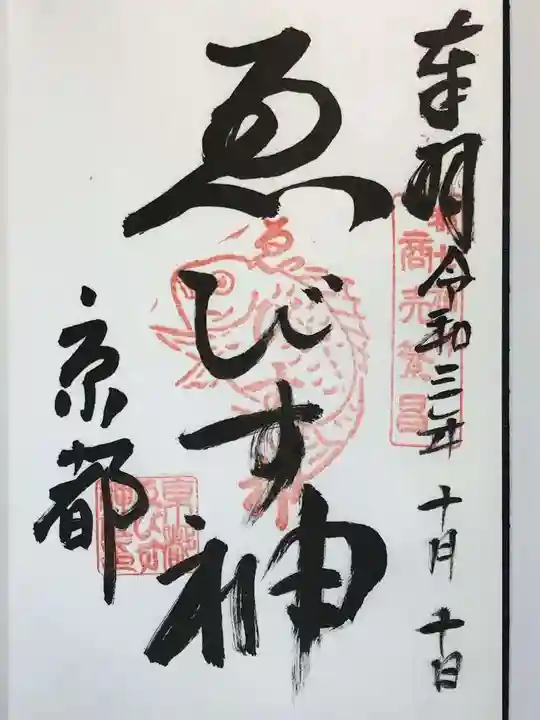 奉拝 令和三年 十月 十日
商売繁昌
ゑびす神
ゑ
京都
京都ゑびす神社